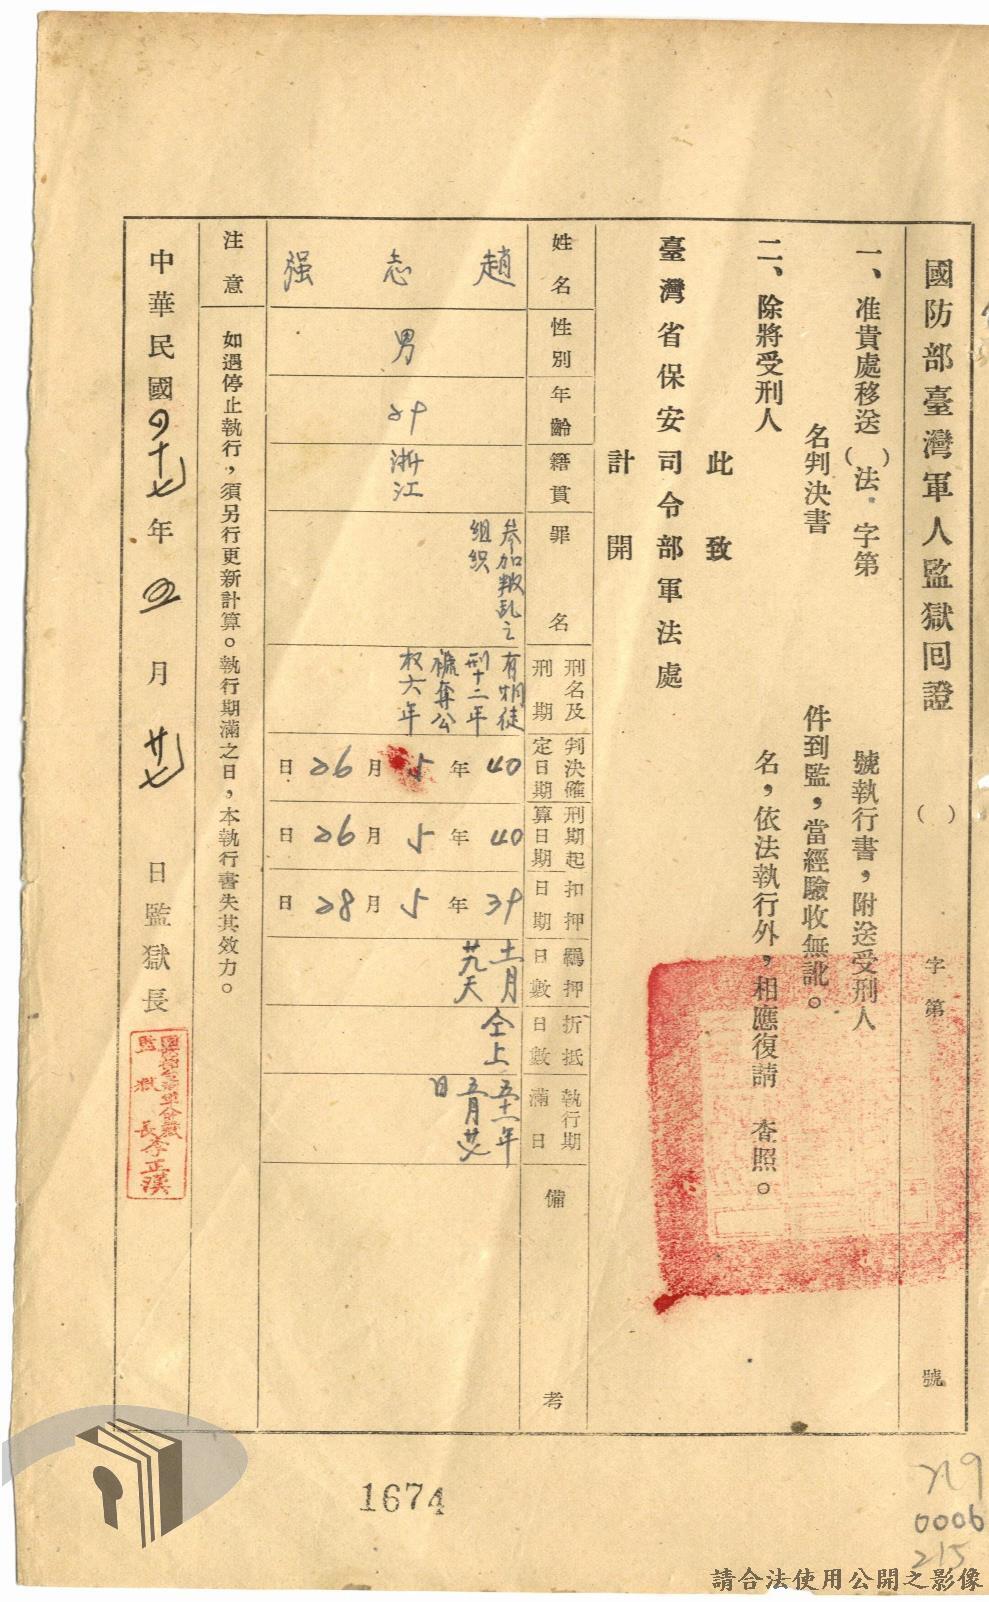 國防部臺灣軍人監獄回證（　）字第　號
一、准貴處移送（　）法．字第　號執行書，附送受刑人
名判決書　件到監，當經驗收無訛。
二、除將受刑人　名，依法執行外，相應復請　查照。
此致
臺灣省保安司令部軍法處
計開
姓名
性別
年齡
籍貫
罪名
刑名及刑期
判決確定日期
刑期起算日期
扣押日期
羈押日數
折抵日數
執行期滿日
備考
趙志强
男
29
浙江
參加叛乱之
组织
有期徒
刑十二年
褫奪公
权六年
40年5月26日
40年5月26日
39年5月28日
十一月
廿九天
仝上
五十一年
五月廿七
日
注意
如遇停止執行，須另行更新計算。執行期滿之日，本執行書失其效力。
中華民國四十七年四月廿七日監獄長
監獄長李正漢
1674
0006
215
請合法使用公開之影像